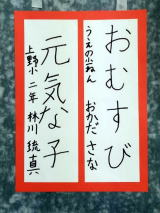 おむすび
うえの小ねん
おかだ さな
元気な子
上野小 二年 林川 琉真